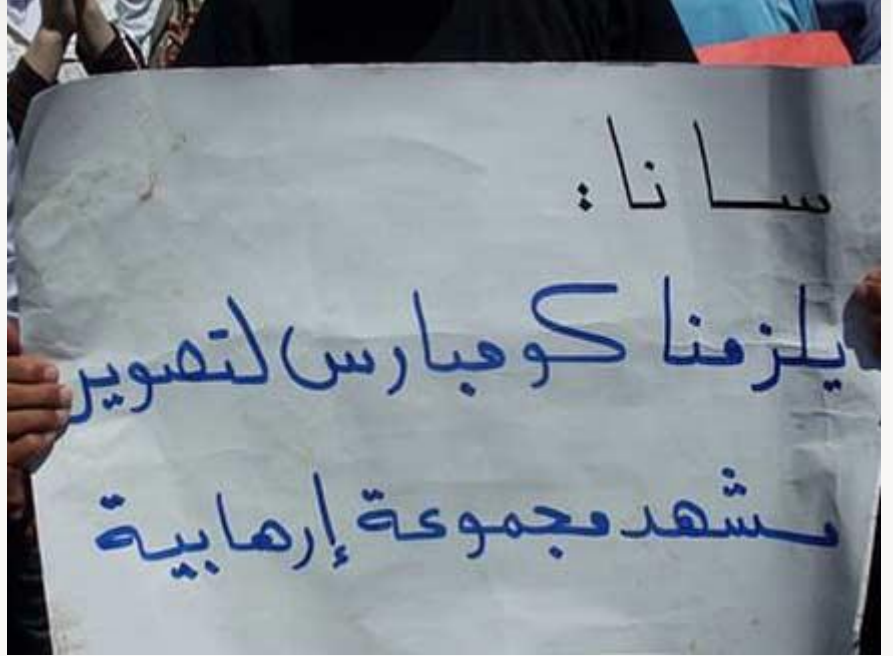 سانا:
يلزمنا كومبارس لتصوير
مشهد مجموعة إرهابية